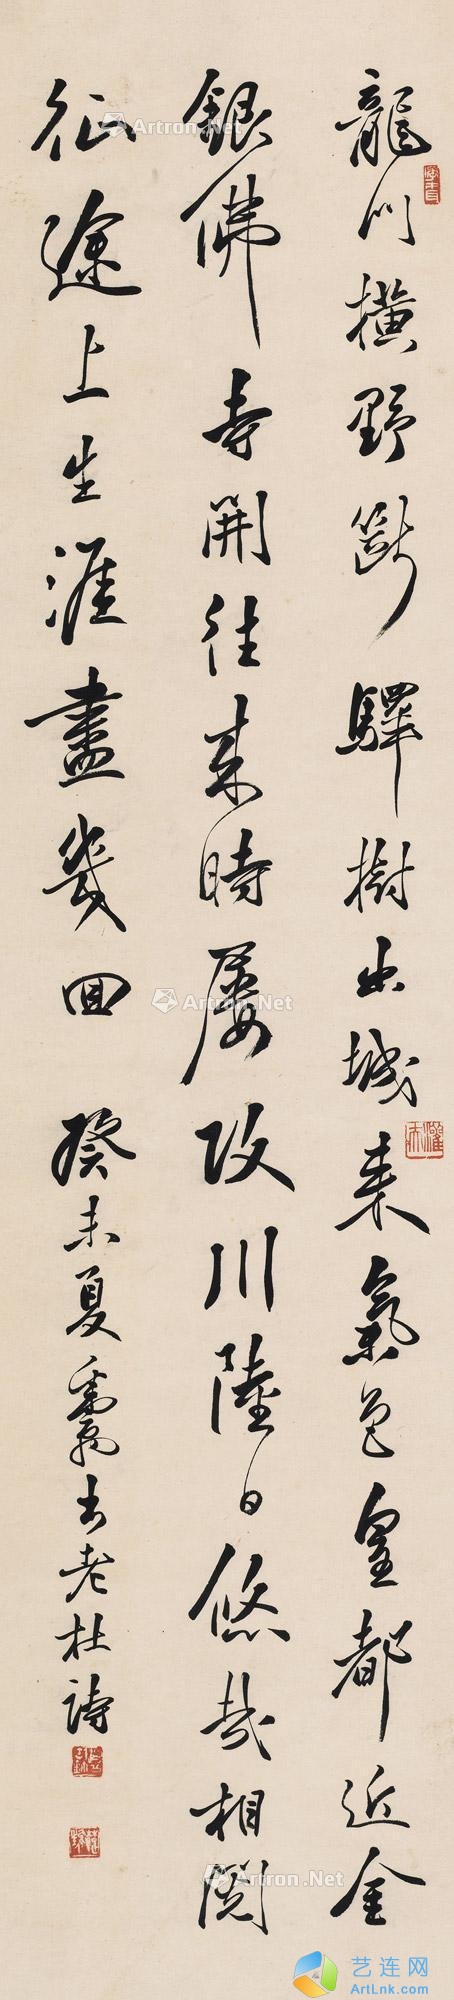 龍門橫野斷驛樹出城来氣色皇都近金
銀佛寺開往来時屢改川陸日悠哉相閱
征途上生涯盡幾回 癸未夏 書老杜詩
Artron.Net
Artron.Net
Artron.Net
Artron.Net
艺连网
ArtLnk.com